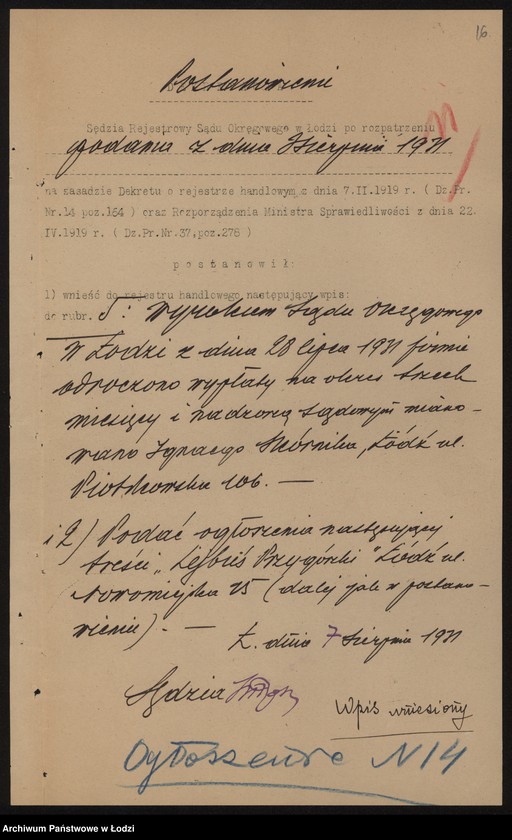 16
Postanowienie
Sędzia Rejestrowy Sądu Okręgowego w Łodzi po rozpatrzeniu
podania z dnia Sierpnia 1931
na zasadzie Dekretu o rejestrze handlowym z dnia 7.II.1919 r. ( Dz.Pr.
Nr.14 poz.164 ) oraz Rozporządzenia Ministra Sprawiedliwości z dnia 22.
IV.1919 r. ( Dz.Pr.Nr.37,poz.278 )
p o s t a n o w i ł :
1) wnieść do rejestru handlowego następujący wpis:
do rubr. 5: Wyrokiem Sądu Okręgowego
w Łodzi z dnia 28 lipca 1931 firmie
odroczono wypłaty na okres trzech
miesięcy i nadzorcą sądowym miano-
wano Ignacego Skórnika, Łódź ul.
Piotrkowska 106. —
i 2) Podać ogłoszenia następującej
treści „Lejbuś Przygórski" Łódź ul.
Nowomiejska 25 (dalej jak w postano-
wieniu). —
Ł. dnia 7 Sierpnia 1931
Sędzia
Wpis wniesiony
Ogłoszenie N 14
Archiwum Państwowe w Łodzi